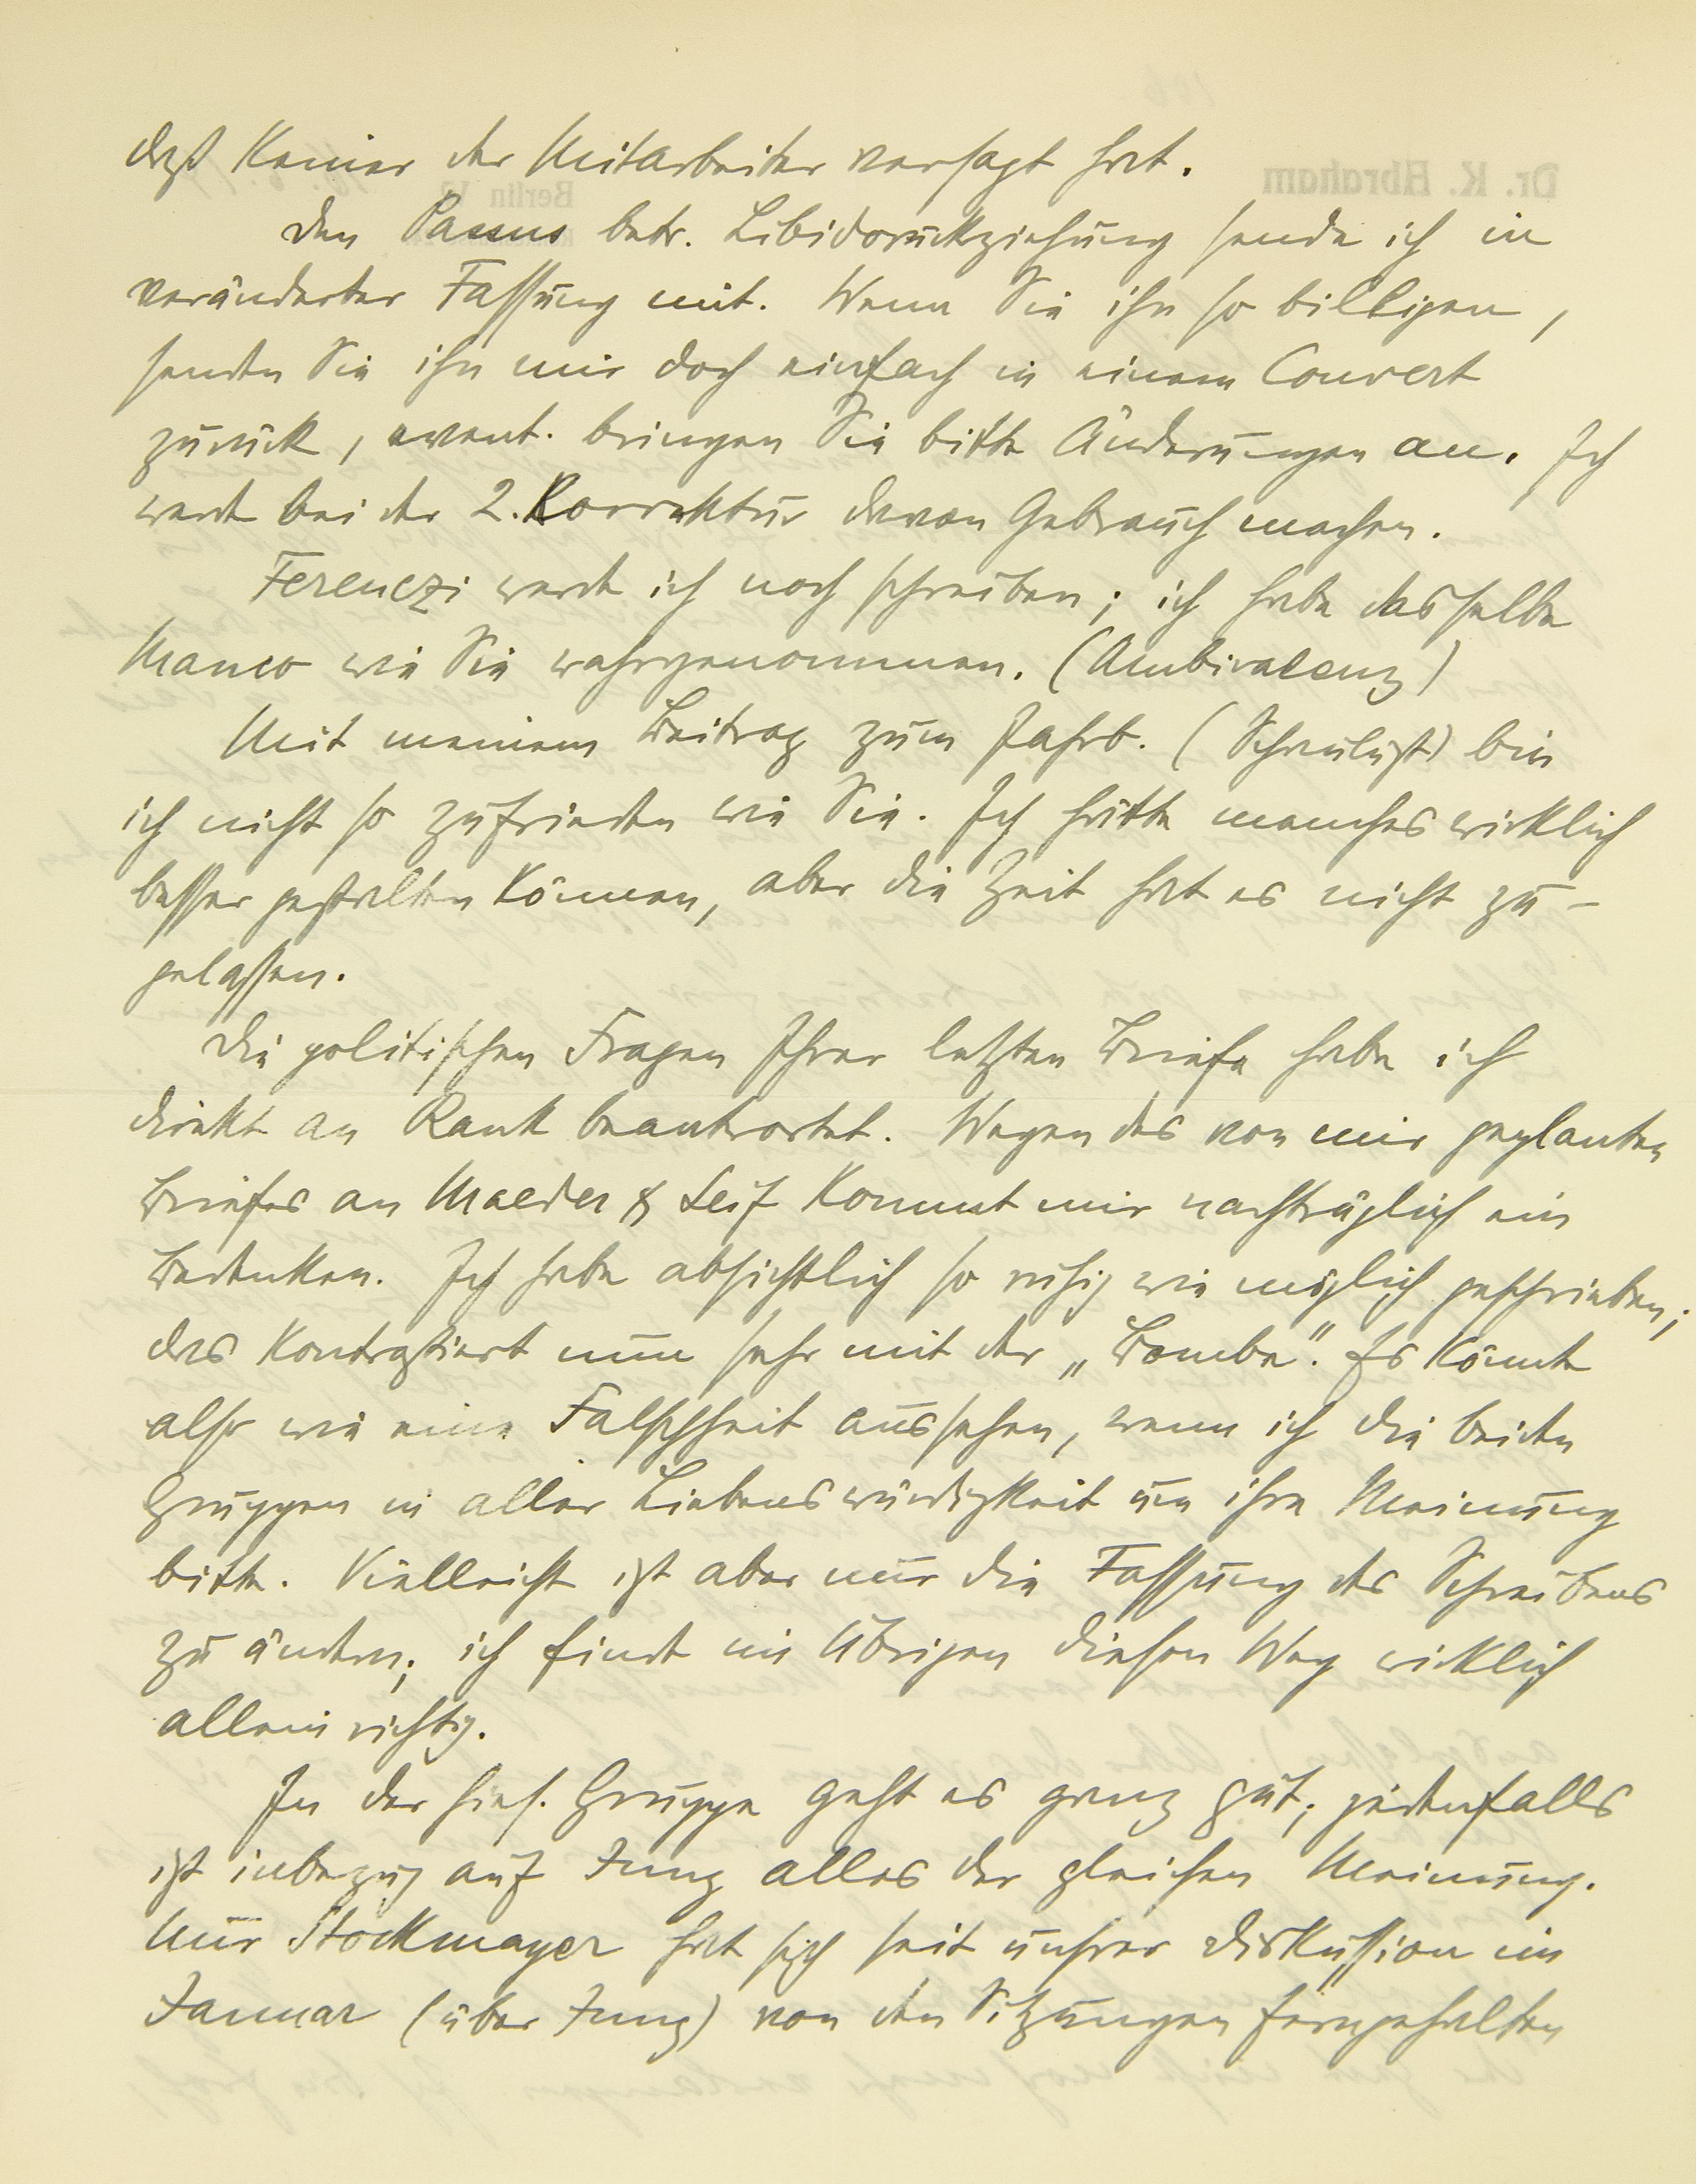 daß Keiner der Mitarbeiter versagt hat.
Den Passus betr. Libidorückziehung sende ich in
veränderter Fassung mit. Wenn Sie ihn so billigen,
senden Sie ihn mir doch einfach in einem Couvert
zurück, event. bringen Sie bitte Änderungen an. Ich
werde bei der 2. Korrektur davon Gebrauch machen.
Ferenczi werde ich noch schreiben; ich habe dasselbe
Manco wie Sie wahrgenommen. (Ambivalenz)
Mit meinem Beitrag zum Jahrb. (Schaulust) bin
ich nicht so zufrieden wie Sie. Ich hätte manches wirklich
besser gestalten können, aber die Zeit hat es nicht zu-
gelassen.
Die politischen Fragen Ihrer letzten Briefe habe ich
direkt an Rank beantwortet. Wegen des von mir geplanten
Briefes an Maeder & Seif kommt mir nachträglich ein
Bedenken. Ich habe absichtlich so ruhig wie möglich geschrieben;
das kontrastiert nun sehr mit der „Bombe". Es könnte
also wie eine Falschheit aussehen, wenn ich die beiden
Gruppen in aller Liebenswürdigkeit um ihre Meinung
bitte. Vielleicht ist aber nur die Fassung des Schreibens
zu ändern; ich finde im Übrigen diesen Weg wirklich
allein richtig.
In der hies. Gruppe geht es ganz gut; jedenfalls
ist inbezug auf Jung alles der gleichen Meinung.
Nur Stockmayer hat sich seit unsrer Diskussion im
Januar (über Jung) von den Sitzungen ferngehalten
Dr. K. Abraham
Berlin W